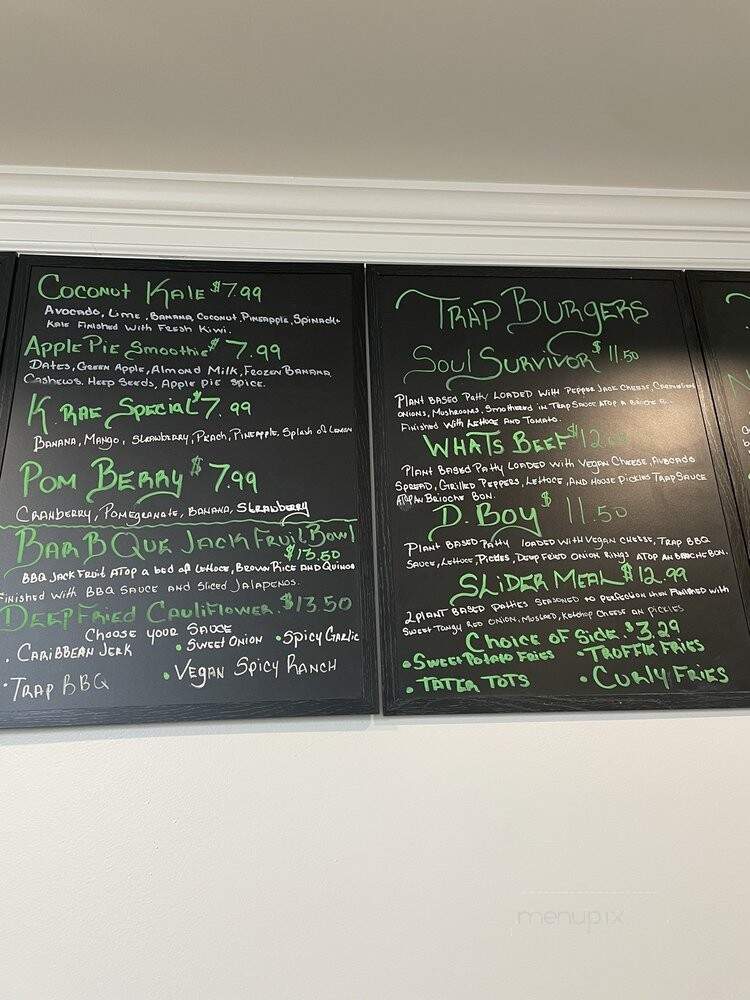 Coconut Kale $7.99
Avocado, Lime, Banana, Coconut, Pineapple, Spinach
Kale Finished With Fresh Kiwi.
Apple Pie Smoothie $7.99
Dates, Green Apple, Almond Milk, Frozen Banana
Cashews, Heep Seeds, Apple pie spice.
K. Rae Special $7.99
Banana, Mango, Strawberry, Peach, Pineapple, Splash of Lemon
Pom Berry $7.99
Cranberry, Pomegranate, Banana, Strawberry
Bar B Que Jack Fruit Bowl
$13.50
BBQ Jack Fruit atop a bed of Lettuce, Brown Rice and Quinoa
Finished with BBQ Sauce and Sliced Jalapenos.
Deep Fried Cauliflower $13.50
Choose your Sauce
• Caribbean Jerk • Sweet Onion • Spicy Garlic
• Trap BBQ • Vegan Spicy Ranch
Trap Burgers
Soul Survivor $11.50
Plant Based Patty Loaded with Pepper Jack Cheese,
Onions, Mushrooms, Smothered in Trap Sauce atop a
Finished with Lettuce and Tomato.
Whats Beef $12
Plant Based Patty Loaded with Vegan Cheese, Avocado
Spread, Grilled Peppers, Lettuce, and House Pickles Trap Sauce
Atop an Brioche Bon.
D. Boy $11.50
Plant Based Patty loaded with Vegan Cheese, Trap BBQ
Sauce, Lettuce, Pickles, Deep Fried Onion Rings atop an Brioche Bon.
Slider Meal $12.99
2 Plant Based Patties Seasoned to Perfection then Finished with
Sweet Tangy Red Onion, Mustard, Ketchup Cheese an Pickles
Choice of Side $3.29
• Sweet Potato Fries • Truffle Fries
• Tater Tots • Curly Fries
menupix